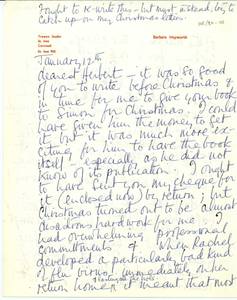 I ought to re-write this – but must instead, try to
catch up on my Christmas letters.
Trewyn Studio
St. Ives
Cornwall
Barbara Hepworth
January 12th
dearest Herbert – it was so good
of you to write before Christmas &
in time for me to give your book
to Simon for Christmas. I could
have given him the money to get
it but it was much more ex-
citing for him to have the book
itself – especially as he did not
know of its publication. I ought
to have sent you my cheque for
it (enclosed now) by return; but
Christmas turned out to be almost
disastrous hard work for me. I
had overwhelming professional
commitments & when Rachel
developed a particularly bad kind
of flu virus immediately on her
return home
it meant that most